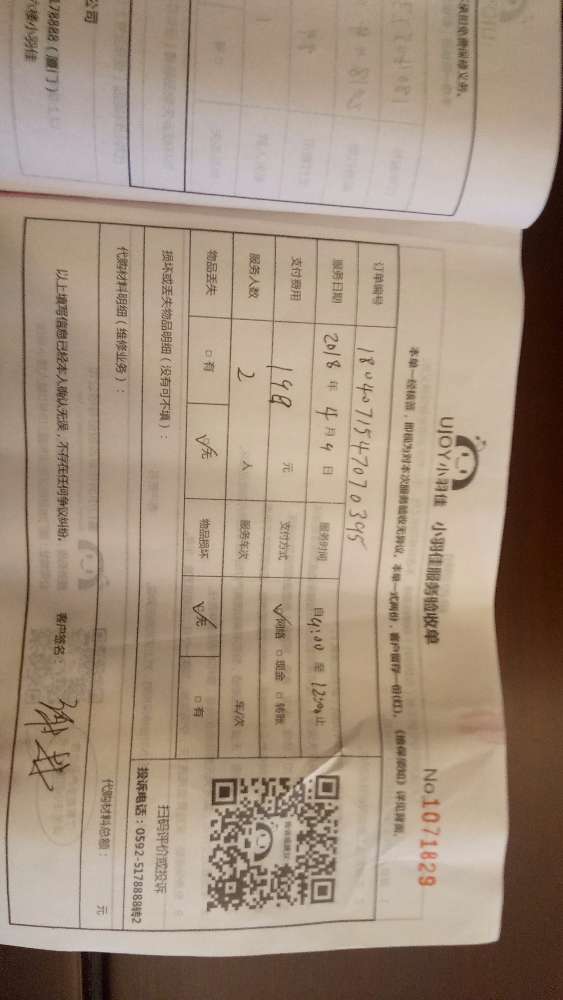 UJOY小羽佳 小羽佳服务验收单 No.1071829
本单一经核签，即视为对本次服务验收无异议。本单一式两份，客户留存一份(红)。《维保须知》详见背面。
订单编号 1804071547070395
服务日期 2018年4月9日 服务时间 自9:00至12:00止
支付费用 198元 支付方式 ☑网络 □现金 □转账
服务人数 2人 服务车次 车/次
物品丢失 □有 ☑无 物品损坏 ☑无 □有
损坏或丢失物品明细（没有可不填）：
扫码评价或投诉
投诉电话：0592-5178888转2
代购材料明细（维修业务）： 代购材料总额： 元
以上填写信息已经本人确认无误，不存在任何争议纠纷。 客户签名：
承担免费保修义务。
公司
178888（厦门）
六楼小羽佳